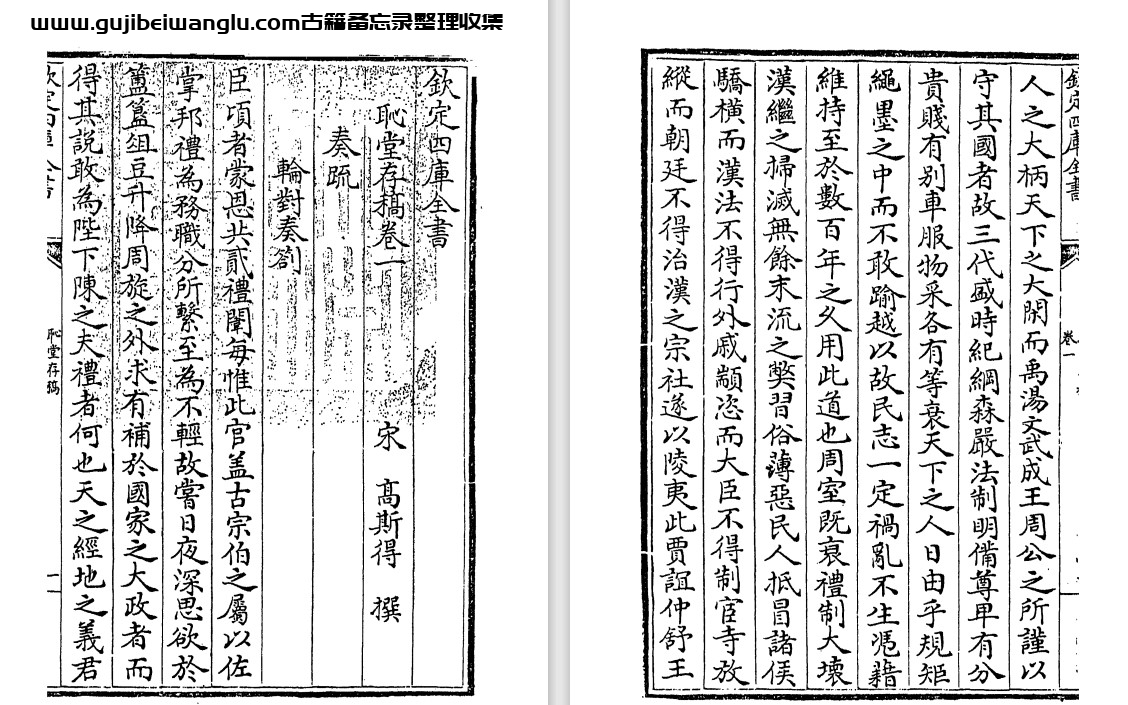 www.gujibeiwanglu.com古籍备忘录整理收集
欽定四庫全書
恥堂存稿卷一
宋 高斯得 撰
奏疏
輪對奏劄
臣頃者蒙恩共貳禮闈每惟此官盖古宗伯之屬以佐
掌邦禮為務職分所繫至為不輕故嘗日夜深思欲於
簠簋俎豆升降周旋之外求有補於國家之大政者而
得其説敢為陛下陳之夫禮者何也天之經地之義君
恥堂存稿
一
欽定四庫全書
卷一
人之大柄天下之大閑而禹湯文武成王周公之所謹以
守其國者故三代盛時紀綱森嚴法制明備尊卑有分
貴賤有别車服物采各有等衰天下之人日由乎規矩
繩墨之中而不敢踰越以故民志一定禍亂不生慿藉
維持至於數百年之久用此道也周室既衰禮制大壞
漢繼之掃滅無餘末流之獘習俗薄惡民人抵冒諸侯
驕横而漢法不得行外戚顓恣而大臣不得制宦寺放
縱而朝廷不得治漢之宗社遂以陵夷此賈誼仲舒王